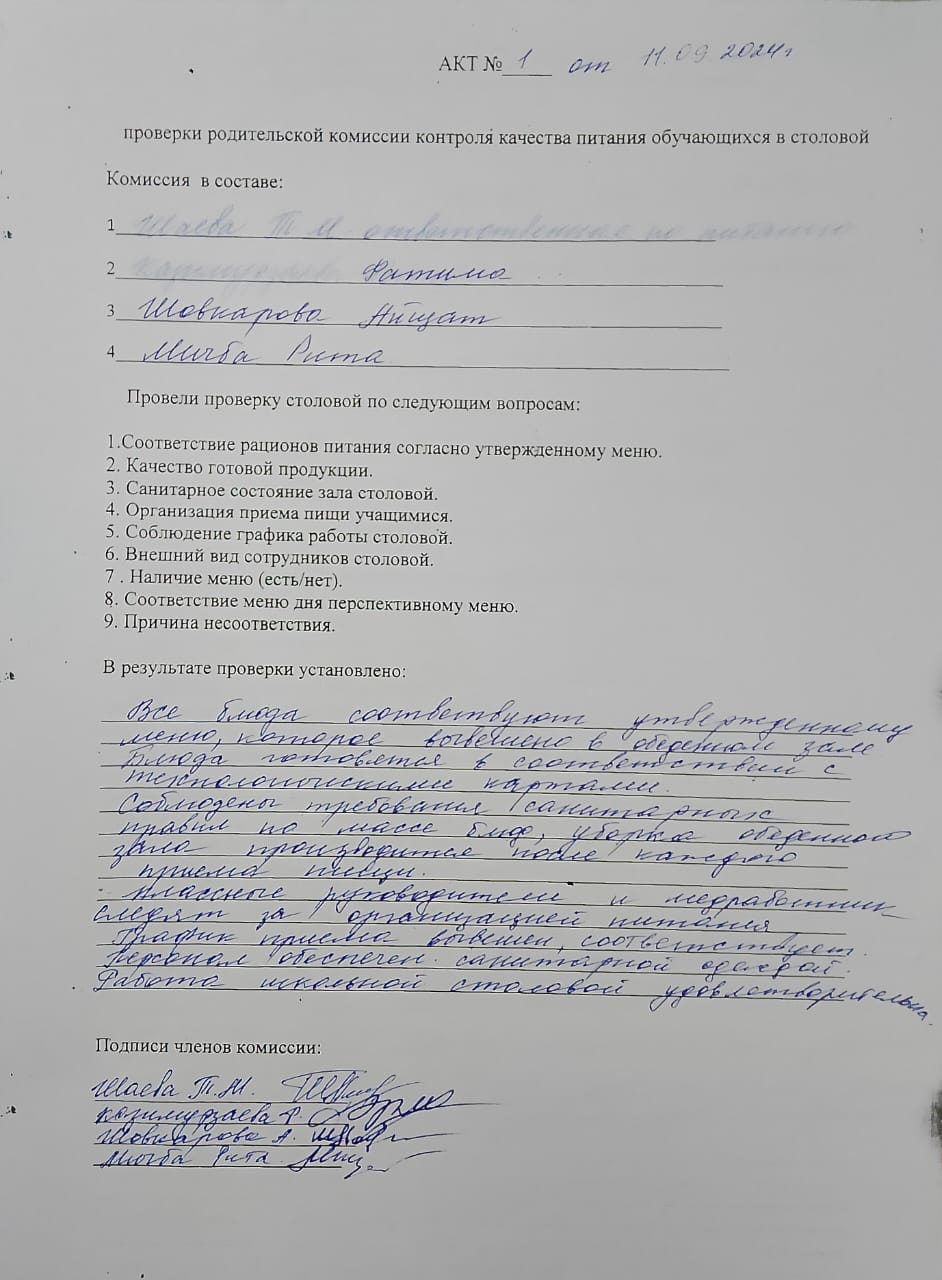 АКТ № 1 от 11.09 2024г
проверки родительской комиссии контроля качества питания обучающихся в столовой
Комиссия в составе:
1 Шаева Т М ответственная по питанию
2 Казимурзаева Фатима
3 Шовкарова Айшат
4 Мичба Рита
Провели проверку столовой по следующим вопросам:
1.Соответствие рационов питания согласно утвержденному меню.
2. Качество готовой продукции.
3. Санитарное состояние зала столовой.
4. Организация приема пищи учащимися.
5. Соблюдение графика работы столовой.
6. Внешний вид сотрудников столовой.
7 . Наличие меню (есть/нет).
8. Соответствие меню дня перспективному меню.
9. Причина несоответствия.
В результате проверки установлено:
Все блюда соотвествуют утвержденному
меню, которое вывешено в обеденном зале
Блюда готовятся в соответствии с
технологическими картами.
Соблюдены требования санитарных
правил по массе блюд, уборка обеденного
зала производится после каждого
приема пищи.
Классные руководители и медработник
следят за организацией питания
График приема вывешен, соответствует.
Персонал обеспечен санитарной одеждой.
Работа школьной столовой удовлетворительна.
Подписи членов комиссии:
Шаева Т.М.
Казимурзаева Ф.
Шовкарова А.
Мичба Рита